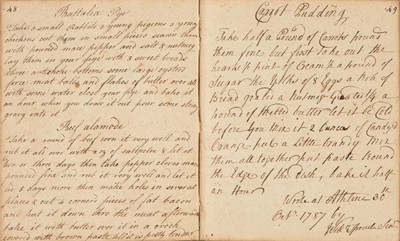 48
Battalia Pye
Take 4 small Rabbits 4 young pigeons 4 young
chickens cut them in small pieces season them
with pounded mace pepper and salt & nutmeg
lay them in your pye with 4 sweet breads
three artichoke bottoms some large oysters
force meat balls and flakes of butter over all
with some water close your pye and bake it
an hour when you draw it out pour some strong
gravy into it
Beef alamode
Take a round of beef rub it very well and
rub it all over with of saltpetre & let it
lie 2 or three days then take pepper cloves mace
pounded fine and rub it very well and let it
lie 5 days more then make holes in several
places & cut 4 corners pieces of fat bacon
and put it down thro the meat afterwards
bake it with butter over it in a crock
covered with brown paste till it is pretty tender
49
Carrot Pudding
Take half a Pound of Carrots pound
them fine but first take out the
hearts ½ pint of Cream ½ a pound of
Sugar the Yolks of 8 Eggs a Pich of
Bread grated a Nutmeg Grated ¼ a
pound of Melted butter let it be Cold
before you Mix it 2 Ounces of Candyd
Orange put a Little brandy Mix
them all together put paste round
the Edge of the Dish, bake it half
an Hour
Wrote at Athlone 30th
Octr 1787 by